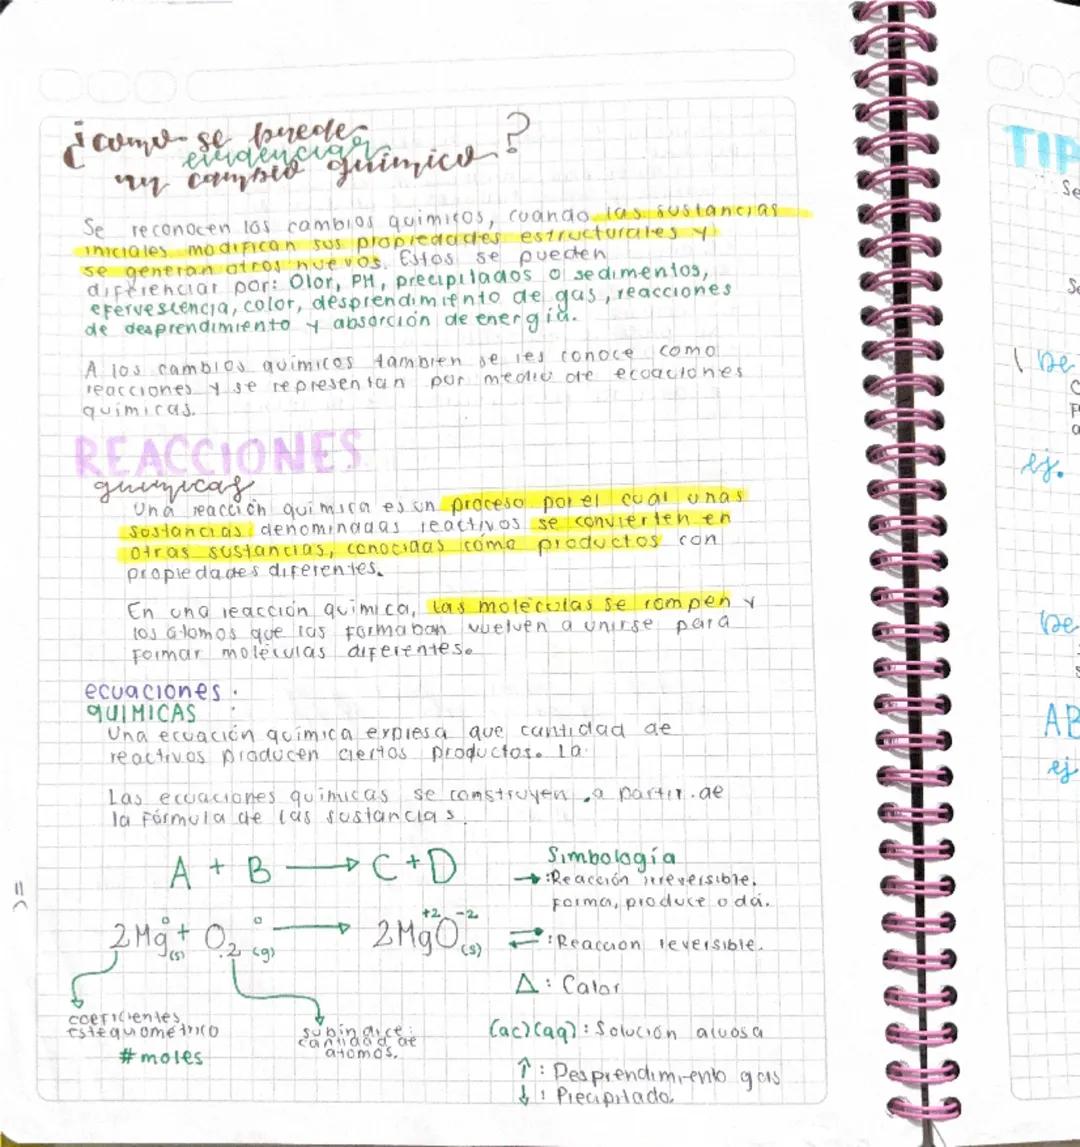 ¿como se puede
evidenciar
un cambio químico?
Se reconocen los cambios químicos, cuando las sustancias
iniciales modifican sus propiedades estructurales y
se generan otros nuevos. Estos se pueden
diferenciar por: Olor, PH, precipitados o sedimentos,
efervescencia, color, desprendimiento de gas, reacciones
de desprendimiento y absorción de energía.
A los cambios químicos tambien se les conoce como
reacciones y se representan por medio de ecuaciones
químicas.
REACCIONES
químicas
Una reacción química es un proceso por el cual unas
sustancias denominadas reactivos se convierten en
otras sustancias, conocidas como productos con
propiedades diferentes.
En una reacción química, las moléculas se rompen y
los átomos que las formaban vuelven a unirse para
formar moléculas diferentes.
ecuaciones
QUIMICAS
Una ecuación química expresa que cantidad de
reactivos producen ciertos productos. La
Las ecuaciones químicas se construyen a partir de
la fórmula de las sustancias.
A + B → C + D
2Mg⁰(s) + O₂⁰(g) → 2Mg⁺²O⁻²(s)
coeficientes
estequiométrico
#moles
subindice:
cantidad de
atomos.
Simbología
→ : Reacción irreversible.
forma, produce o dá.
⇄ : Reaccion reversible.
Δ : Calor
(ac)(aq) : Solución acuosa
↑ : Desprendimiento gas
↓ : Precipitado.
TIP
Se
Se
De
ej.
De
AB
ej